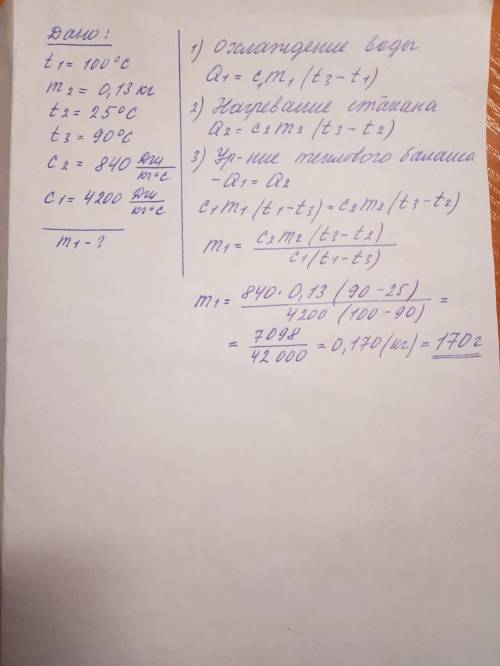 Дано:
t1 = 100°C
m2 = 0,13 кг
t2 = 25°C
t3 = 90°C
c2 = 840 Дж/кг°C
c1 = 4200 Дж/кг°C
m1 - ?
1) Охлаждение воды
Q1 = c1m1 (t3 - t1)
2) Нагревание стакана
Q2 = c2m2 (t3 - t2)
3) Ур-ние теплового баланса
-Q1 = Q2
c1m1 (t1 - t3) = c2m2 (t3 - t2)
m1 = c2m2 (t3 - t2) / c1 (t1 - t3)
m1 = 840 · 0,13 (90 - 25) / 4200 (100 - 90) =
= 7098 / 42000 = 0,170 (кг) = 170 г